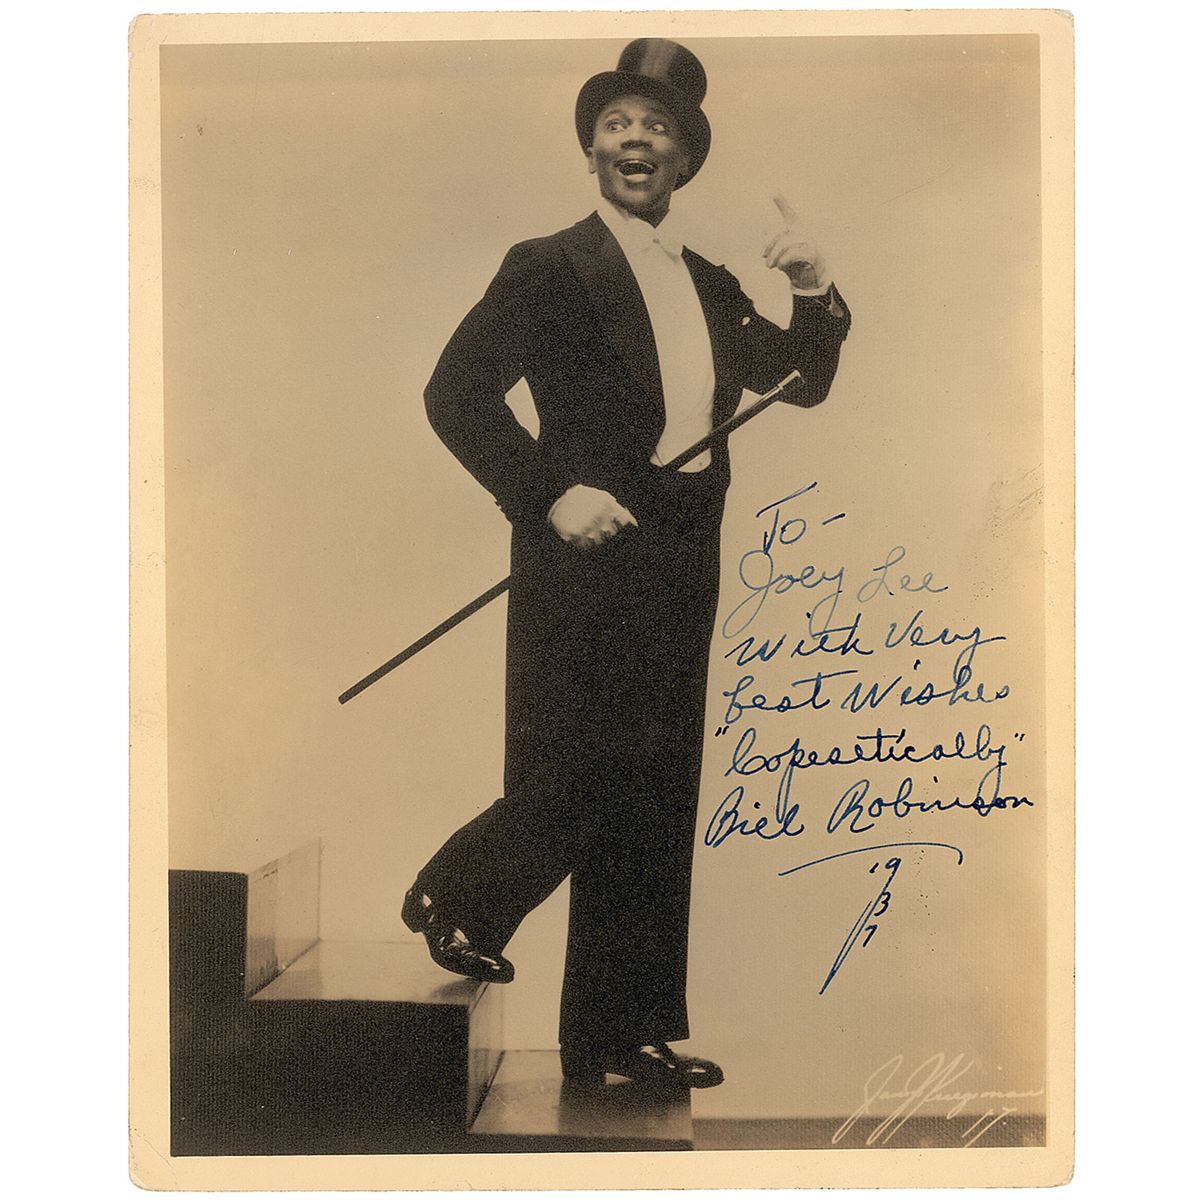 To -
Joey Lee
With Very
best Wishes
"Copesetically"
Bill Robinson
1937
17.